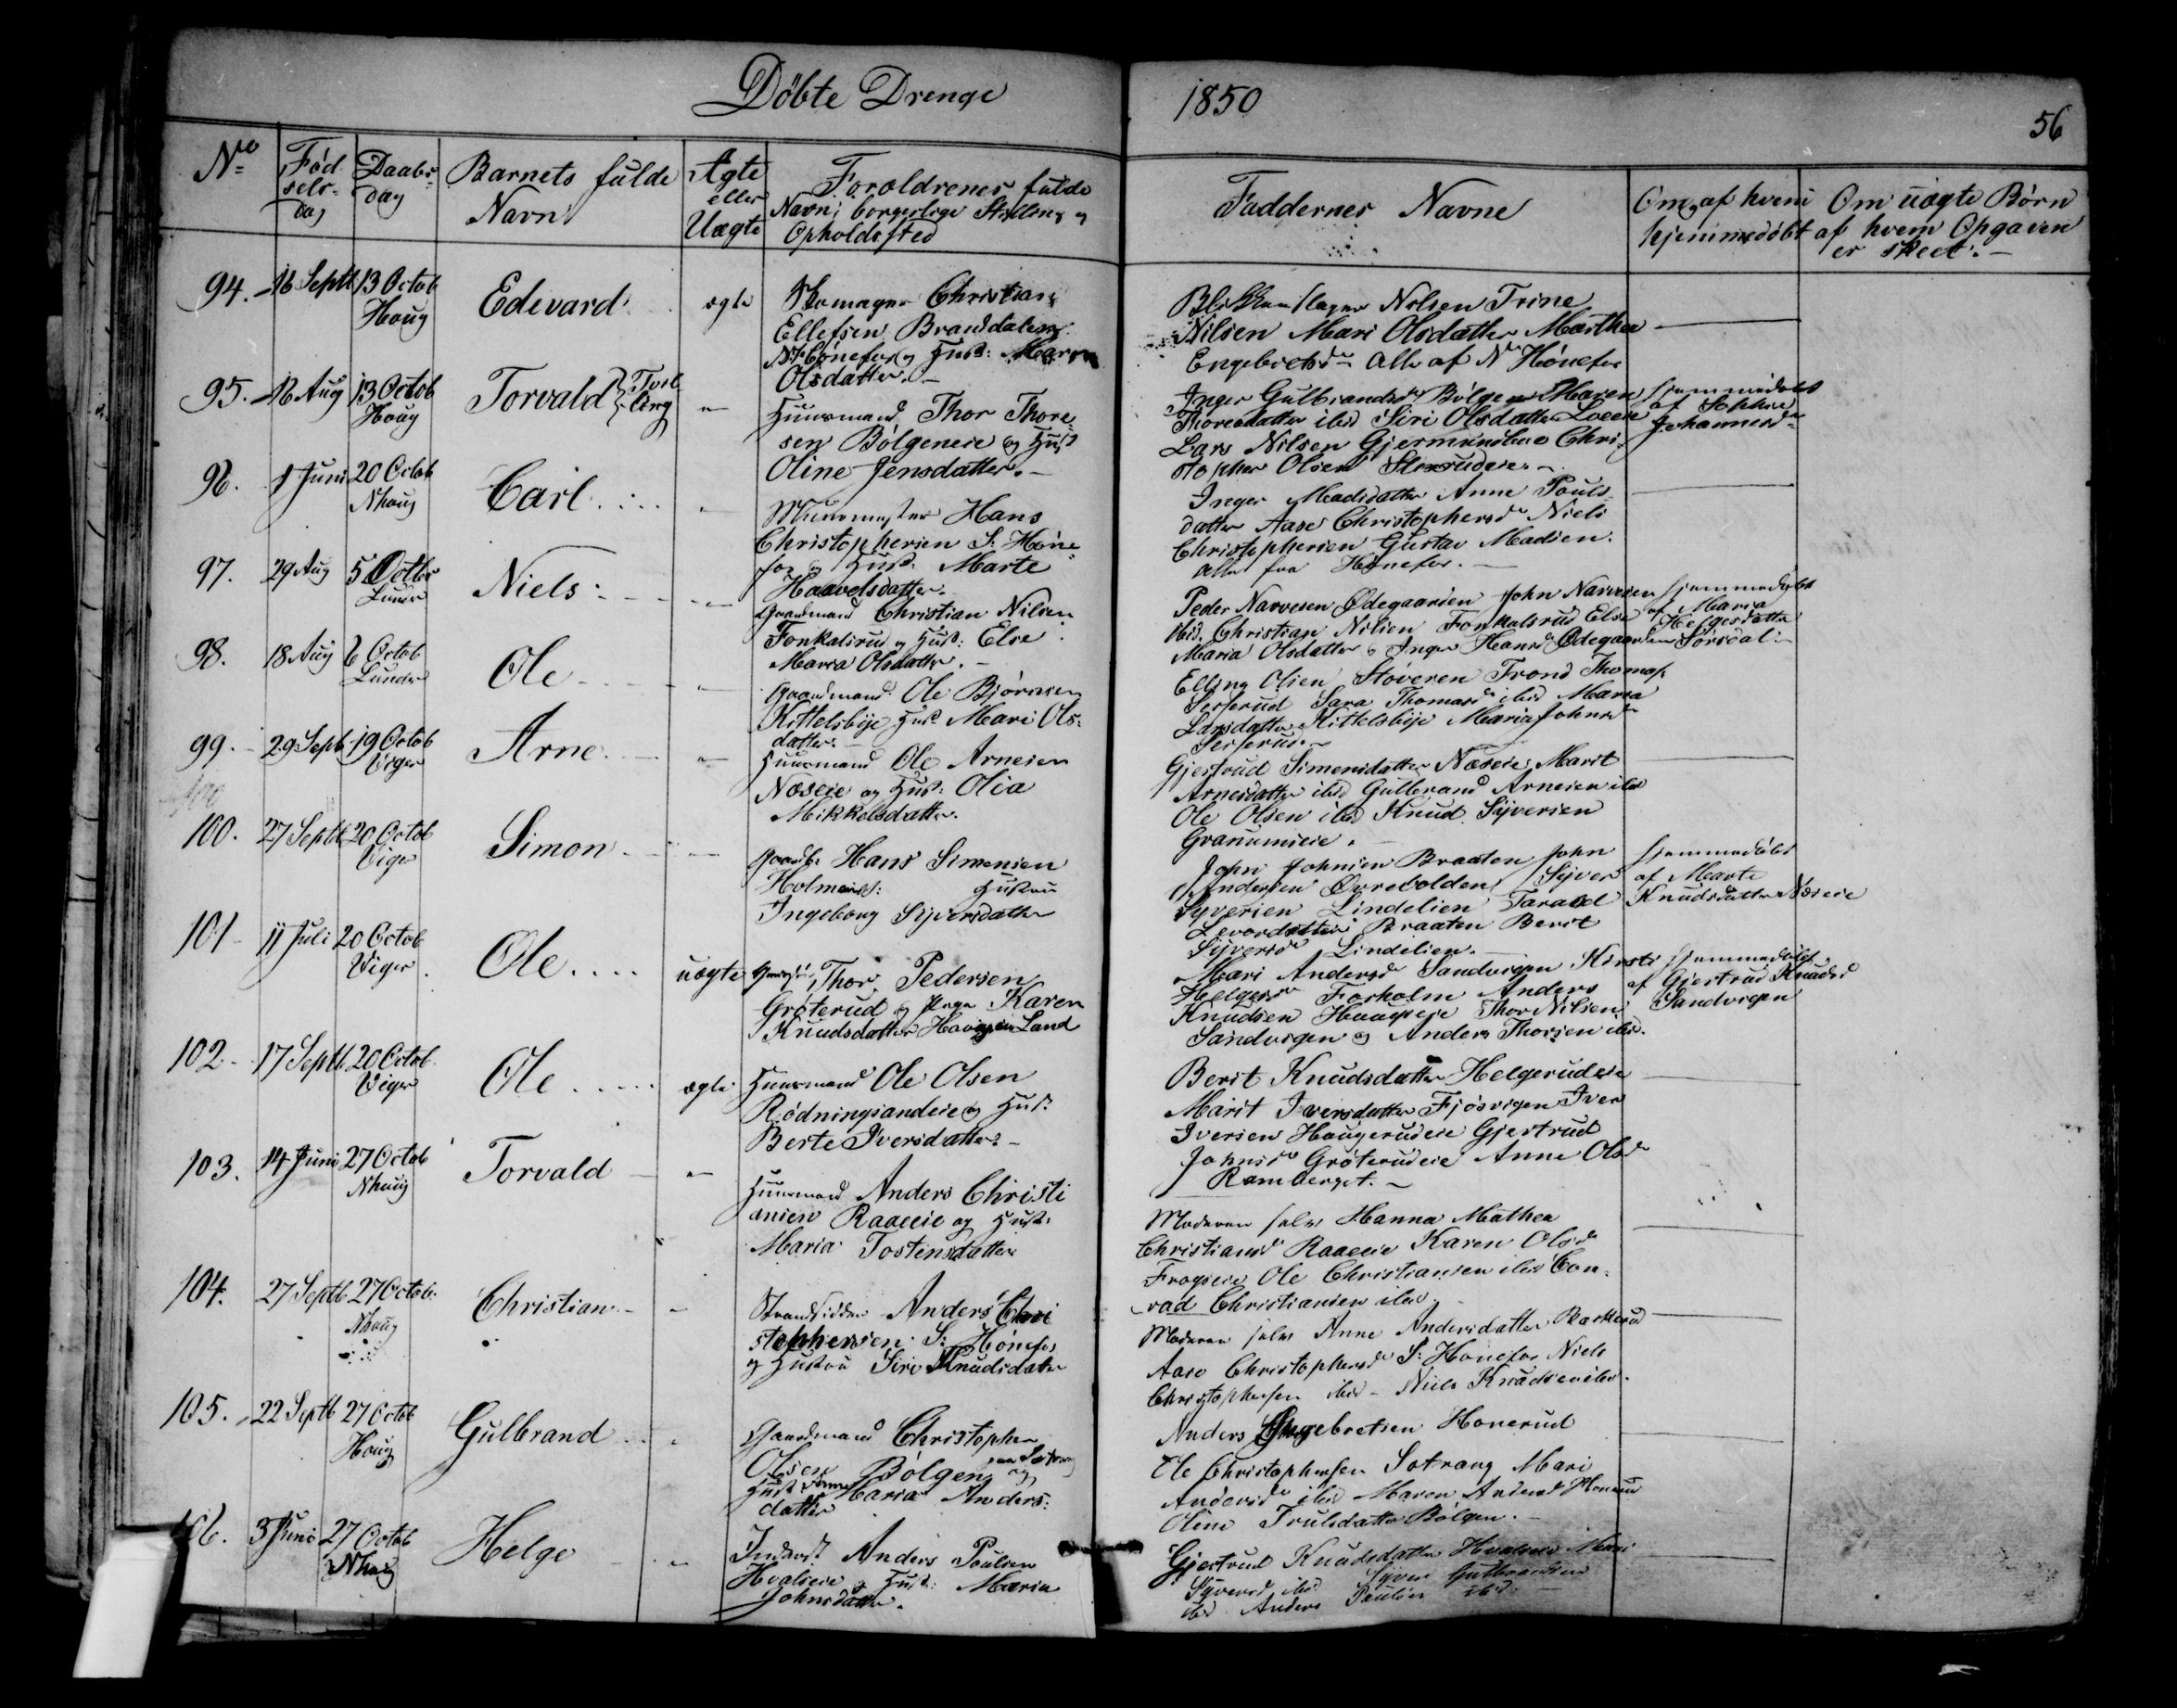 Døbte Drenge
1850
56
No
Fød
sels-
dag
Daabs-
dag
Barnets fulde
Navn
Ægte
eller
Uægte
Forældrenes fulde
Navn, borgerlige Stilling og
Opholdssted
Faddernes Navne
Om, af hvem
hjemmedøbt
Om uægte Børn
af hvem Opgaven
er skeet. -
94. 16 Septb 13 Octob
Houg
Edevard ægte
Skomager Christian
Ellefsen Branddalen
N. Hønefos og Hust: Maren
Olsdatter. -
Blikkenslager Nilsen Trine
Nilsen Mari Olsdatter Marthea
Engebretsdr alle af Nr Hønefos
95. 16 Aug 13 Octob
Houg
Torvald } Tvil
ling
Huusmand Thor Thore-
sen Bølgeneie og Hust
Oline Jensdatter. -
Inger Gulbrandsdr Bølgen Maren
Thoresdatter ibid Siri Olsdatter Loeen
Lars Nilsen Gjermundboe Chri-
stopher Olsen
hjemmedøbt
af Sophie
Johannesdr
96. 1 Juni 20 Octob
Nhoug
Carl
Muurmester Hans
Christophersen S: Høne-
fos og Hust: Marte
Haavelsdatter.
Inger Madsdatter Anne Pouls-
datter Aase Christophersdr Niels
Christophersen Gustav Madsen.
alle fra Hønefos. -
97. 29 Aug 5 Octbr
Lunder
Niels
Gaardmand Christian Nilsen
Fonkalsrud og Hust: Else
Maria Olsdatter. -
Peder Narvesen Ødegaarden John Narvesen
ibid. Christian Nilsen Fonkalsrud Else
Maria Olsdatter Inger Hansdr Ødegaarden
hjemmedøbt
af Maria
Helgesdatter
Sørsdal -
98. 18 Aug 6 Octob
Lunder
Ole
Gaardmand Ole Bjørnsen
Kittelsbye Hust Mari Ols-
datter. -
Elling Olsen Støveren Trond Thomas.
Sesserud Sara Thomasdr ibid Maria
Larsdatter Kittelsbye Maria Johnsdr
Sesserud
99. 29 Septb. 19 Octob
Viger
Arne
Huusmand Ole Arnesen
Næseie og Hust: Olia
Mikkelsdatter.
Gjertrud Simensdatter Næseie Marit
Arnesdatter ibid Gulbrand Arnesen ibid
Ole Olsen ibid Knud Syversen
Granumseie. -
100. 27 Septb 20 Octob
Viger
Simon
Gaardb: Hans Simensen
Holmen Hustru
Ingeborg Syversdatter
John Johnsen Braaten John
Andersen Øvrebolden Syver
Syversen Lindelien Tarald
Levordsdatter Braaten Berit
Syversdr Lindelien. -
hjemmedøbt
af Marte
Knudsdatter Næseie
101 11 Juli 20 Octob
Viger
Ole uægte
Thor Pedersen
Grøterud og Pige Karen
Knudsdatter Land
Mari Andersdr Sandvigen Kirsti
Helgesdr Forholm Anders
Knudsen Thor Nilsen
Sandvigen og Anders Thorsen ibid.
hjemmedøbt
af Gjertrud Knudsd
Sandvigen
102. 17 Septb 20 Octob
Viger
Ole ægte
Huusmand Ole Olsen
Rødningsandeie og Hust.
Berte Iversdatter. -
Berit Knudsdatter Helgerudeie
Marit Iversdatter Fjøsvigen Iver
Iversen Haugerudeie Gjertrud
Johnsdr Grøterudeie Anne Olsdr
Ramberget. -
103. 14 Juni 27 Octob
Nhoug
Torvald
Huusmand Anders Christi
ansen Raaeeie og Hust:
Maria Tostensdatter
Moderen selv Hanna Mathea
Christiansdr Raaeeie Karen Olsdr
Frogseie Ole Christiansen ibid Con-
rad Christiansen ibid. -
104. 27 Septb 27 Octob.
Nhoug
Christian
Strandsidder Anders Chri
stophersen S: Hønefos
og Hustru Siri Knudsdatter
Moderen selv Anne Andersdatter
Aase Christophersdr S: Hønefos Niels
Christophersen ibid - Niels Knudsen ibid.
105. 22 Septb 27 Octob
Houg
Gulbrand
Gaardmand Christopher
Olsen Bølgen og
Hust Anne Maria Anders-
datter
Anders Engebretsen Honerud
Ole Christophersen Sotrang Mari
Andersdr ibid Maren Andersd Honerud
Oline Trulsdatter Bølgen. -
106. 3 Juni 27 Octob
Nhoug
Helge
Inderst Anders Paulsen
Hvalseie og Hust: Maria
Johnsdatter.
Gjertrud Knudsdatter Hvalseie Mari
Syversd ibid Syver Gulbrandsen
ibid Anders Paulsen ibid. -